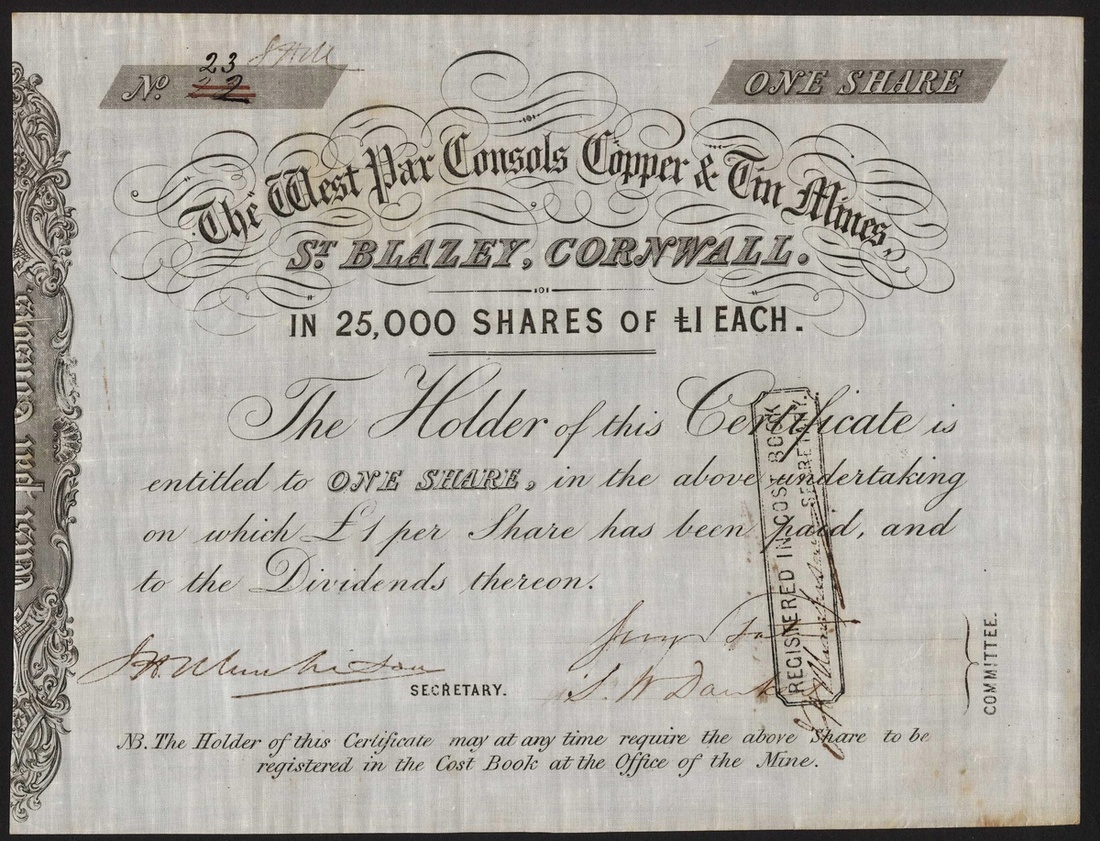 23
No. 22
ONE SHARE
The West Par Consols Copper & Tin Mines,
ST. BLAZEY, CORNWALL.
IN 25,000 SHARES OF £1 EACH.
The Holder of this Certificate is
entitled to ONE SHARE, in the above undertaking
on which £1 per Share has been paid, and
to the Dividends thereon.
REGISTERED IN COST BOOK
SECRETARY.
SECRETARY.
COMMITTEE.
NB. The Holder of this Certificate may at any time require the above Share to be
registered in the Cost Book at the Office of the Mine.
West Par Consols